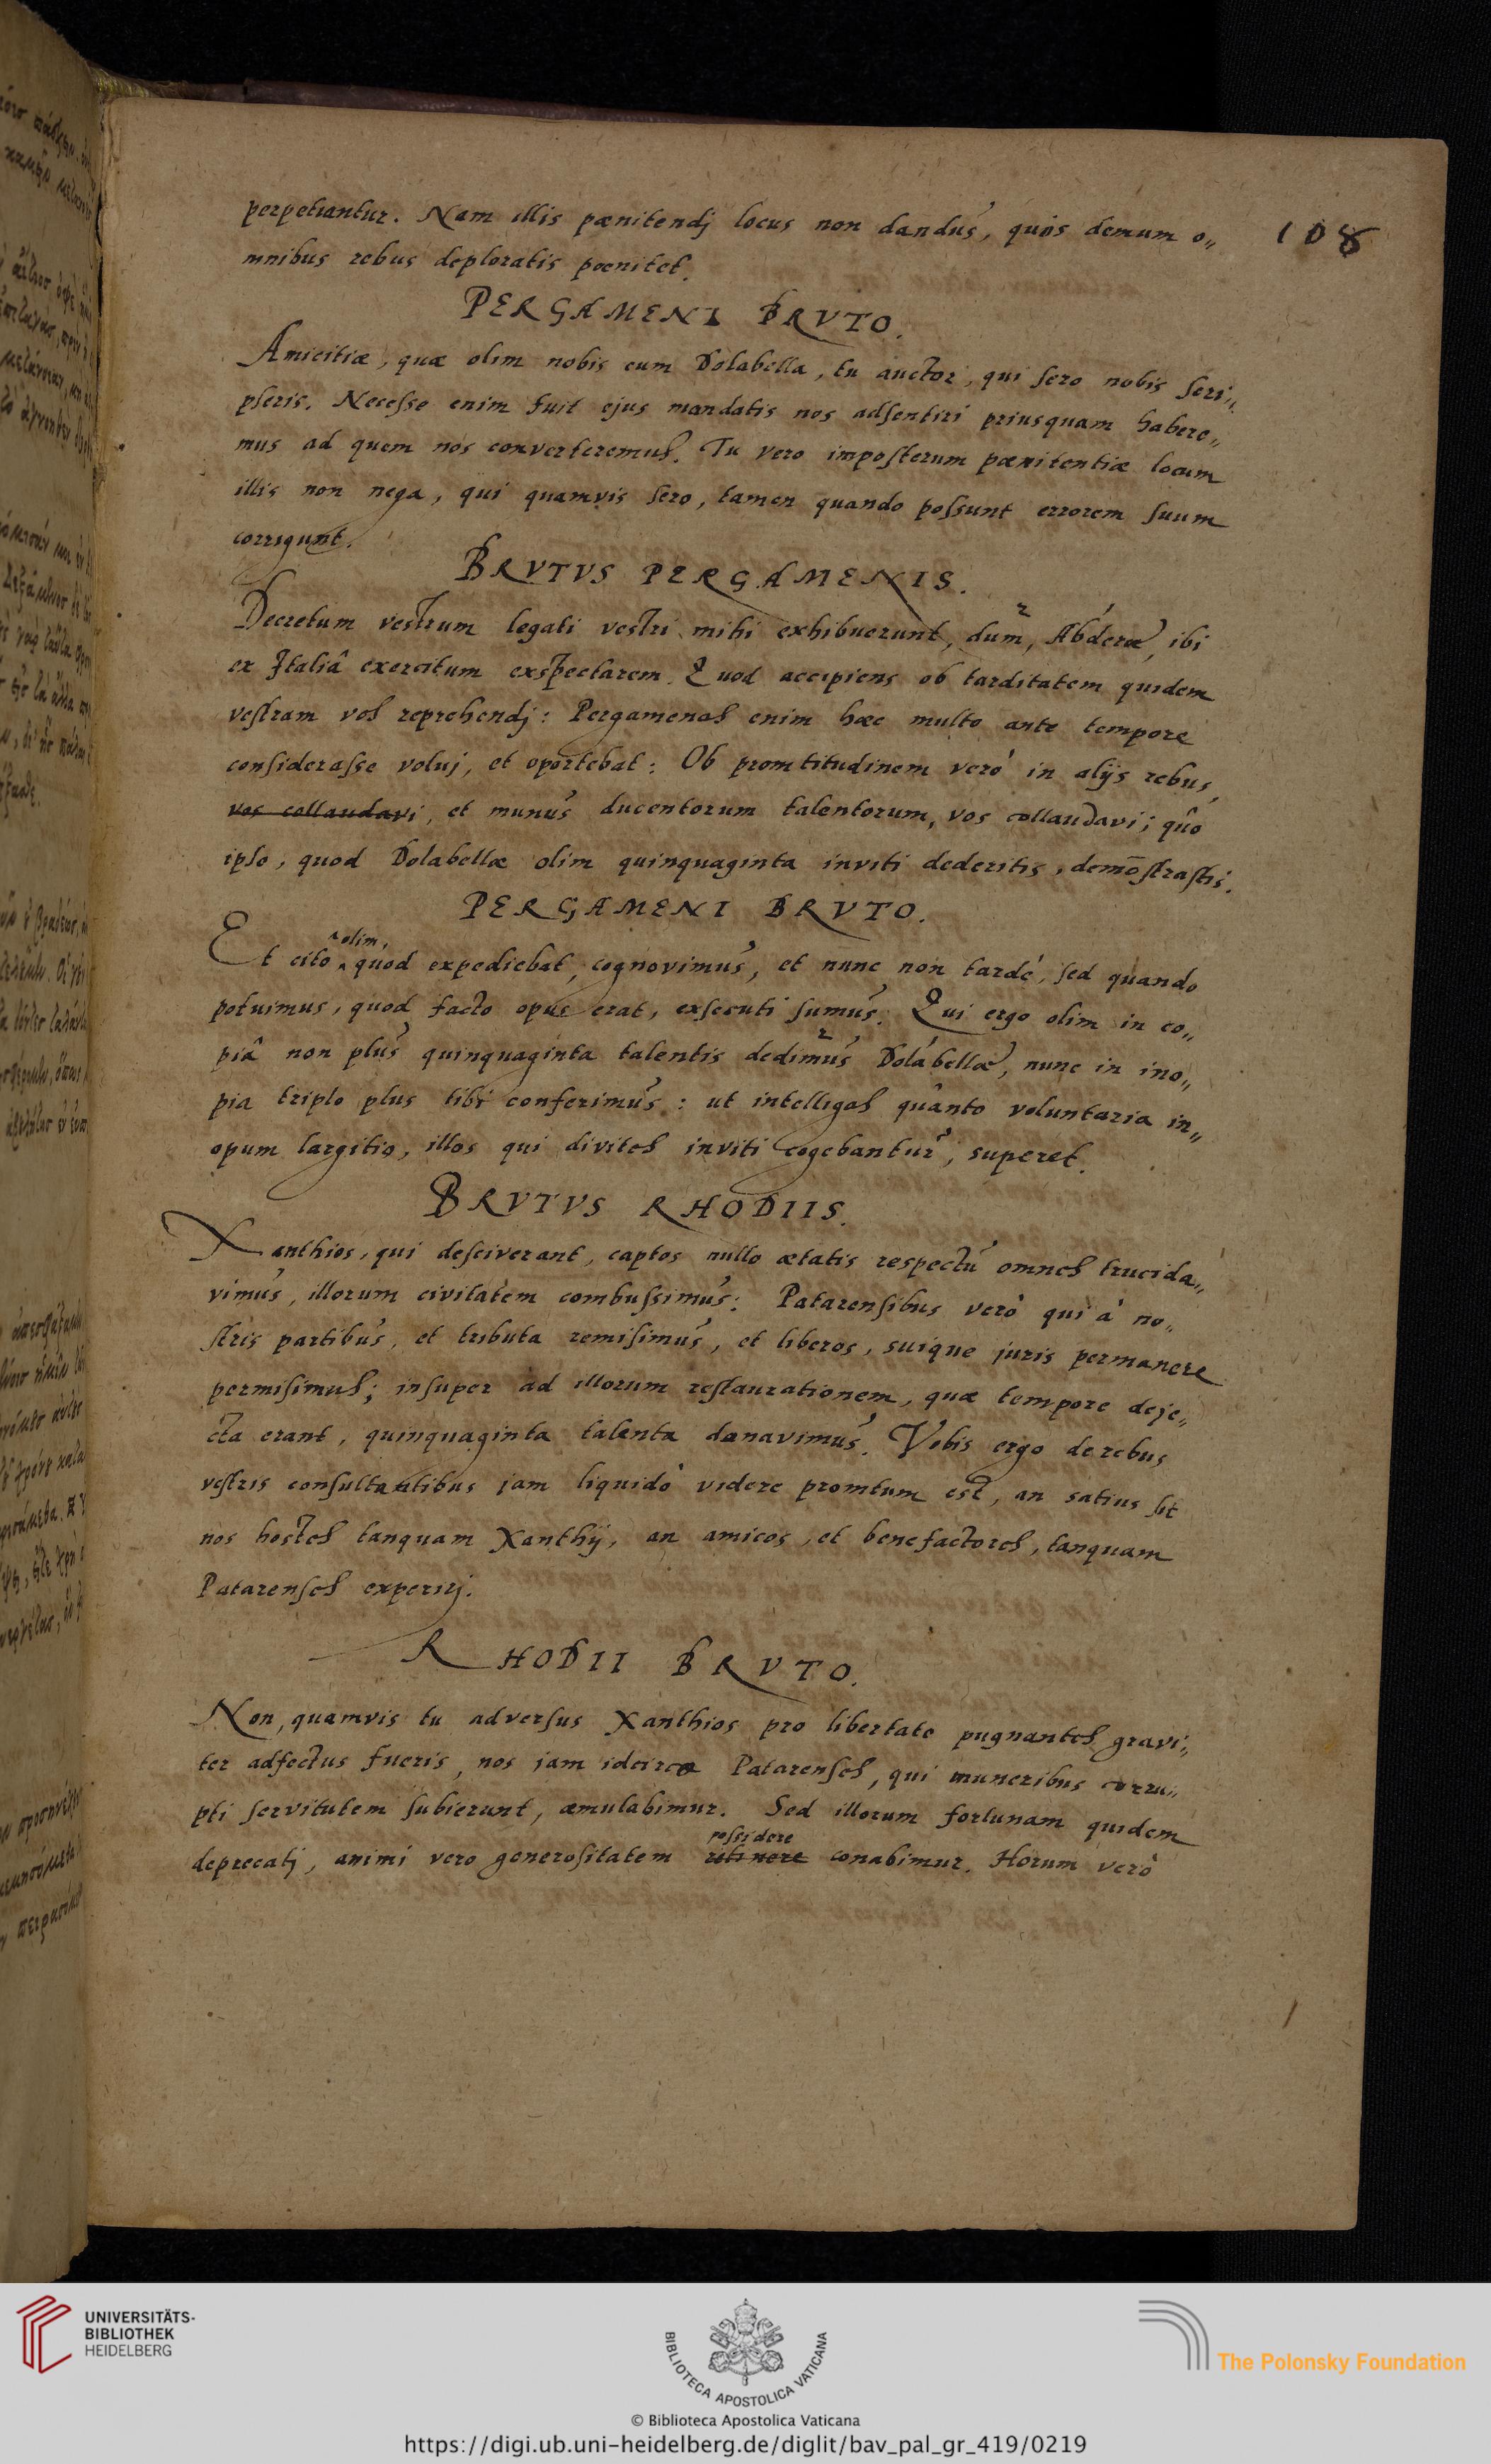 perpetiantur. Nam illis pænitendj locus non dandus, quos demum o„
108
mnibus rebus deploratis poenitet.
PERGAMENI BRVTO.
Amicitiæ, quæ olim nobis cum Dolabella, tu auctor, qui sero nobis scri„
pseris. Necesse enim fuit ejus mandatis nos adsentiri priusquam habere„
mus ad quem nos converteremus. Tu vero imposterum pænitentiæ locum
illis non nega, qui quamvis sero, tamen quando possunt errorem suum
corrigunt.
BRVTVS PERGAMENIS.
Decretum vestrum legati vestri mihi exhibuerunt, dum, Abderæ, ibi
ex Italiâ exercitum exspectarem. Quod accipiens ob tarditatem quidem
vestram vos reprehendj: Pergamenos enim hæc multo ante tempore
considerasse voluj, et oportebat: Ob promtitudinem verò in alijs rebus,
vos collaudavi, et munus ducentorum talentorum, vos collaudavi; quo
ipso, quod Dolabellæ olim quinquaginta inviti dederitis, demōstrastis.
PERGAMENI BRVTO.
Et cito olim, quod expediebat, cognovimus, et nunc non tardè, sed quando
potuimus, quod facto opus erat, exsecuti sumus. Qui ergo olim in co„
piâ non plus quinquaginta talentis dedimus Dolabellæ, nunc in ino„
pia triplo plus tibi conferimus: ut intelligas quanto voluntaria in„
opum largitio, illos qui divites inviti cogebantur, superet.
BRVTVS RHODIIS.
Xanthios, qui desciverant, captos nullo ætatis respectu omnes trucida„
vimus, illorum civitatem combussimus: Patarensibus verò qui à no„
stris partibus, et tributa remisimus, et liberos, suique juris permanere
permisimus; insuper ad illorum restaurationem, quæ tempore deje„
cta erant, quinquaginta talenta donavimus. Vobis ergo de rebus
vestris consultantibus jam liquidò videre promtum est, an satius sit
nos hostes tanquam Xanthij, an amicos, et benefactores, tanquam
Patarenses experirj.
RHODII BRVTO.
Non, quamvis tu adversus Xanthios pro libertate pugnantes gravi„
ter adfectus fueris, nos jam idcirco Patarenses, qui muneribus corru„
pti servitutem subierunt, æmulabimur. Sed illorum fortunam quidem
possidere
deprecatj, animi vero generositatem retinere conabimur. Horum verò
UNIVERSITÄTS-
BIBLIOTHEK
HEIDELBERG
BIBLIOTECA APOSTOLICA VATICANA
The Polonsky Foundation
© Biblioteca Apostolica Vaticana
https://digi.ub.uni-heidelberg.de/diglit/bav_pal_gr_419/0219